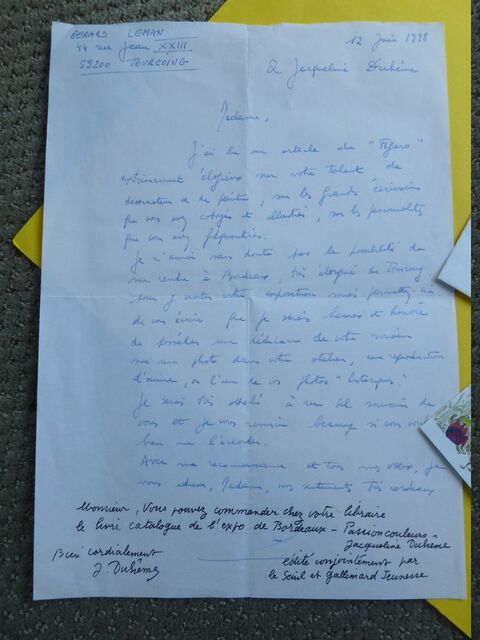 GERARD LEMAN
44 rue Jean XXIII
59200 TOURCOING
12 Juin 1998
A Jacqueline Duhême
Madame,
J'ai lu un article du "Figaro"
extrêmement élogieux sur votre talent de
dessinateur et de peintre, sur les grands écrivains
que vous avez côtoyés et illustrés, sur les personnalités
que vous avez fréquentées.
Je n'aurai sans doute pas la possibilité de
me rendre à Bordeaux, très éloigné de Tourcoing
pour y visiter votre exposition mais permettez-moi
de vous écrire que je serais heureux et honoré
de posséder une dédicace de votre main
sur une photo dans votre atelier, une reproduction
d'œuvre, ou l'une de vos photos "historiques".
Je serai très attaché à un tel souvenir de
vous et je vous remercie beaucoup si vous voulez
bien me l'accorder.
Avec ma reconnaissance et tous mes vœux, je
vous adresse, Madame, mes sentiments très cordiaux
Monsieur, Vous pouvez commander chez votre libraire
le livre catalogue de l'expo de Bordeaux - Passion couleurs -
Jacqueline Duhême
édité conjointement par
le Seuil et Gallimard Jeunesse
Bien cordialement
J. Duhême